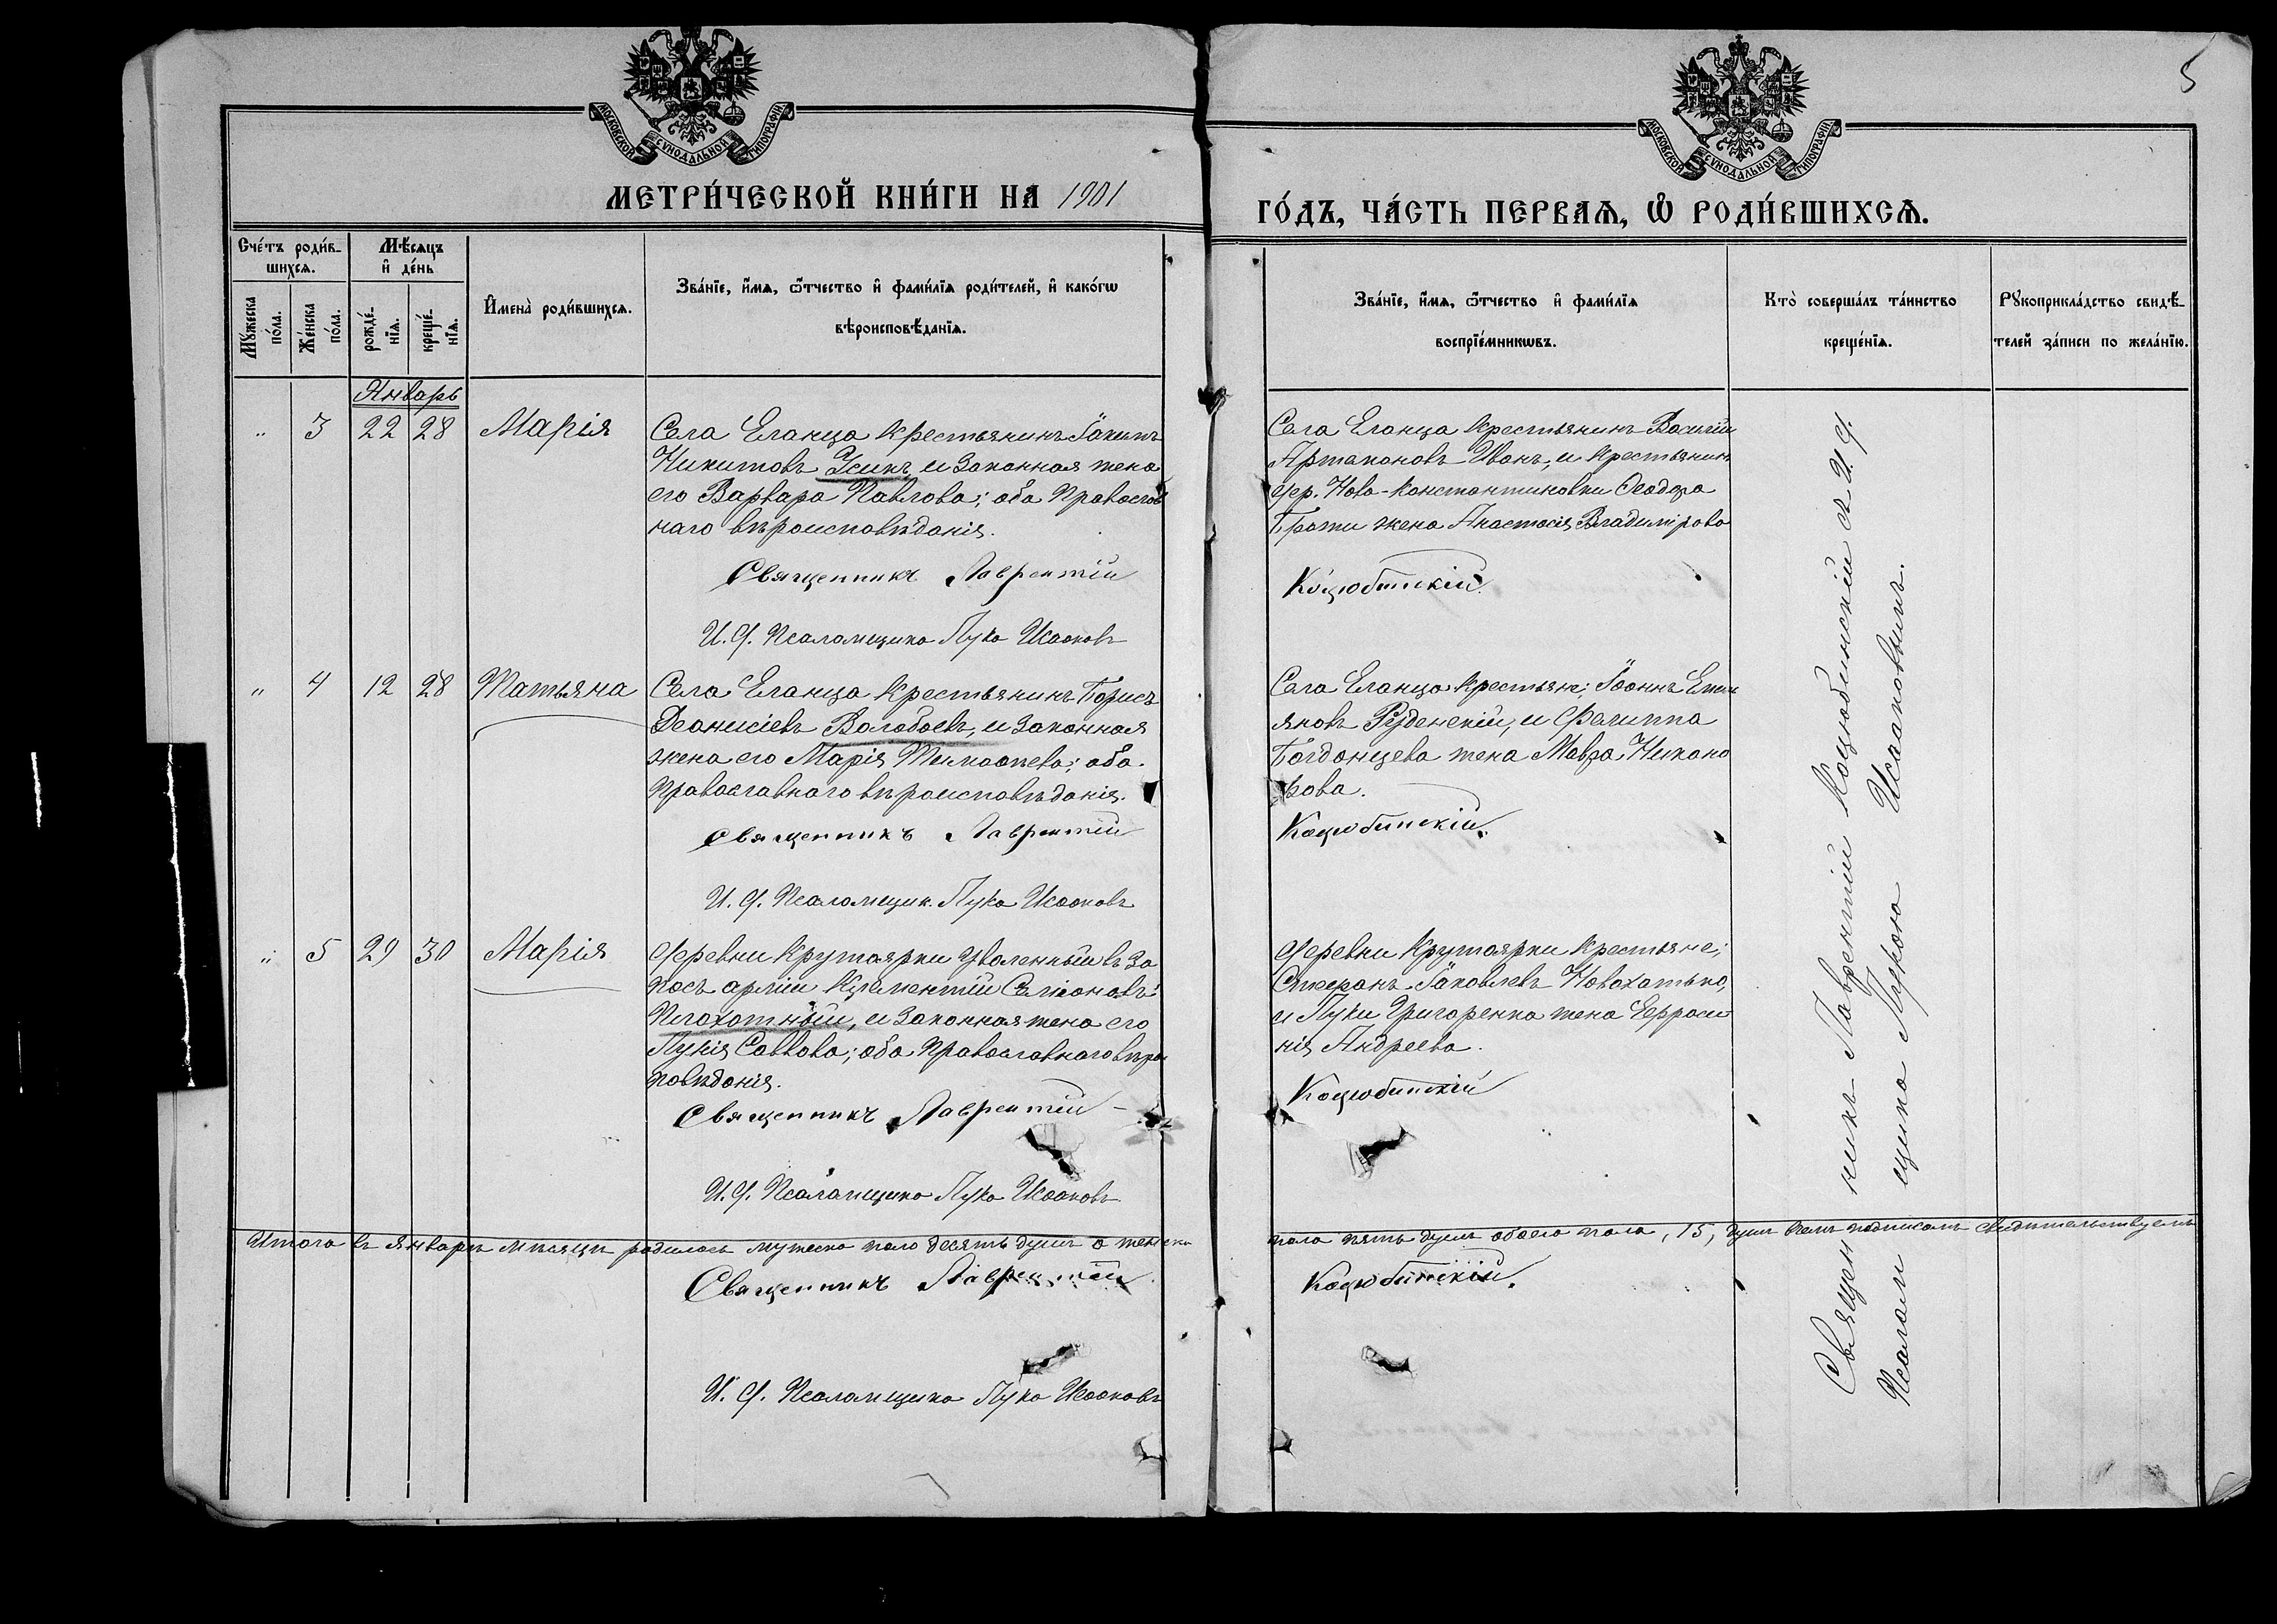 5
МОСКОВСКОЙ СѴНОДАЛЬНОЙ ТИПОГРАФІИ
МОСКОВСКОЙ СѴНОДАЛЬНОЙ ТИПОГРАФІИ
МЕТРИ́ЧЕСКОЙ КНИ́ГИ НА 1901
ГО́ДЪ, ЧА́СТЬ ПЕРВАѦ, Ѡ҆ РОДИ́ВШИХСѦ.
Сче́тъ роди́в-
шихсѧ.
Мꙋ́жеска
по́ла.
Же́нска
по́ла.
Мѣ́сѧцъ
и҆ де́нь
рожде́-
нїѧ.
креще́-
нїѧ.
И҆мена̀ роди́вшихсѧ.
Зва́нїе, и҆́мѧ, ѻ҆́тчество и҆ фами́лїѧ роди́телей, и҆ како́гѡ
вѣроисповѣ́данїѧ.
Зва́нїе, и҆́мѧ, ѻ҆́тчество и҆ фами́лїѧ
воспрїе́мникѡвъ.
Кто̀ соверша́лъ та́инство
креще́нїѧ.
Рꙋкоприкла́дство свидѣ́-
телей за́писи по жела́нїю.
Январь
" 3 22 28 Марія
Села Еланца крестьянинъ Іакимъ
Никитовъ Усикъ, и законная жена
его Варвара Павлова; оба Православ
наго вѣроисповѣданія.
Священникъ Лаврентій
И. Д. Псаломщика Лука Исааковъ
Села Еланца крестьянинъ Василій
Иванъ, и крестьянина
дер. Ново-Константиновки Ѳеодора
жена Анастасія Владимірова
Коцюбинскій.
" 4 12 28 Татьяна
Села Еланца крестьянинъ Борисъ
Діонисіевъ Волобоевъ, и законная
жена его Марія Тимоѳеева; оба
православнаго вѣроисповѣданія.
Священникъ Лаврентій
И. Д. Псаломщик. Лука Исааковъ
Села Еланца крестьяне; Іоаннъ Емель
яновъ Руденскій, и Филиппа
Богданцева жена Мавра Никано
рова.
Коцюбинскій.
" 5 29 30 Марія
Деревни Крутоярки уволенный въ за
пасъ арміи Климентій Симоновъ
Плохотный, и законная жена его
Лукія Саввова; оба православнаго вѣрои
повѣданія.
Священникъ Лаврентій
И. Д. Псаломщика Лука Исааковъ
Деревни Крутоярки крестьяне;
Стефанъ Іаковлевъ Новохатько,
и Луки Григоренка жена Евфроси
нія Андреева.
Коцюбинскій
Итого въ Январѣ мѣсяцѣ родилось мужеска пола десять душъ а женска
пола пять душъ обоего пола, 15, душъ въ чемъ подписомъ свидѣтельствуемъ
Священникъ Лаврентій
Коцюбинскій.
И. Д. Псаломщика Лука Исааковъ
Священникъ Лаврентій Коцюбинскій съ И. Д.
Псаломщика Лукою Исааковымъ.